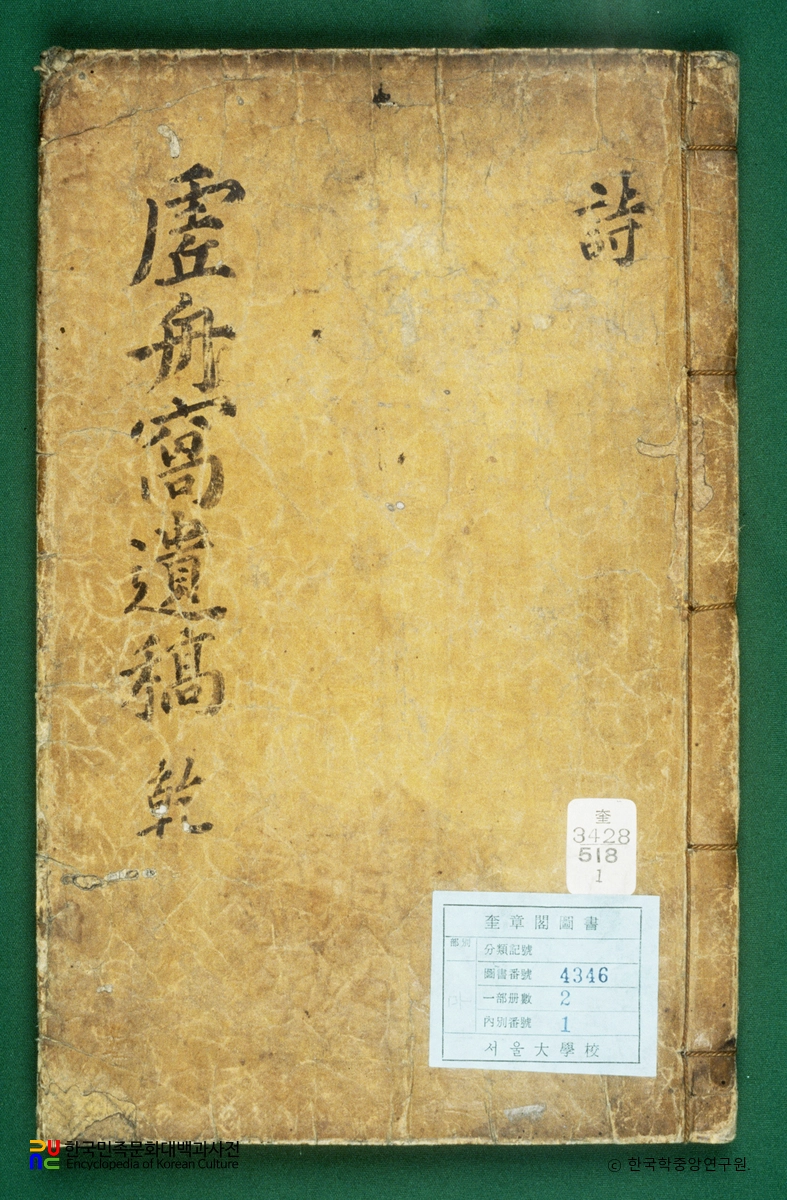 詩
虛舟窩遺稿 乾
奎
3428
518
1
奎章閣圖書
部別
分類記號
圖書番號 4346
一部册數 2
內別番號 1
서울大學校
한국민족문화대백과사전
Encyclopedia of Korean Culture
© 한국학중앙연구원.